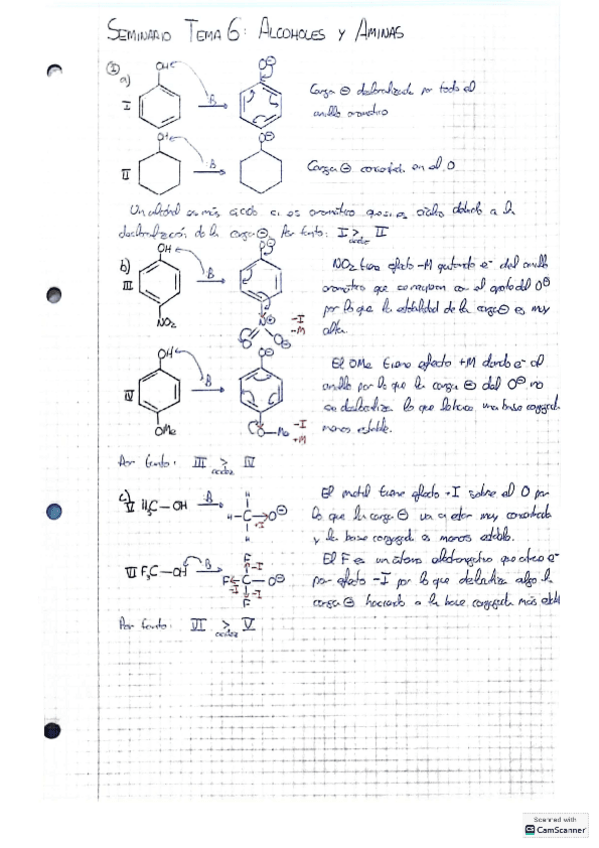 SEMINARIO TEMA 6: ALCOHOLES Y AMINAS
①
a)
I
OH
B
O⊖
Carga ⊖ deslocalizada por todo el
anillo aromático
II
OH
B
O⊖
Carga ⊖ en el O
Un alcohol es más ácido si es aromático que si es cíclico debido a la
deslocalización de la carga ⊖. Por tanto: I > II
acidez
b)
III
OH
B
O⊖
NO₂
N⊕
O
O⊖
-I
-M
NO₂ tiene efecto -M quitando e⁻ del anillo
aromático que con el del O⊖
por lo que la estabilidad de la carga ⊖ es muy
alta.
IV
OH
B
O⊖
OMe
O-Me
-I
+M
El OMe tiene efecto +M dando e⁻ al
anillo por lo que la carga ⊖ del O⊖ no
se deslocaliza lo que una base conjugada
menos estable.
Por tanto: III > IV
acidez
c)
V H₃C-OH
B
H
H-C-O⊖
+I
H
El metil tiene efecto +I sobre el O por
lo que la carga ⊖ va a estar muy
y la base conjugada es menos estable.
VI F₃C-OH
B
F
F-C-O⊖
-I
-I
-I
F
El F es un átomo electronegativo que atrae e⁻
por efecto -I por lo que deslocaliza algo la
carga ⊖ haciendo a la base conjugada más
Por tanto: VI > V
acidez
Scanned with
CamScanner